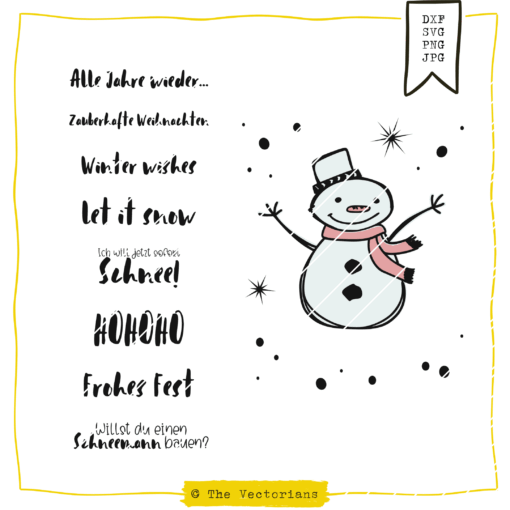 DXF
SVG
PNG
JPG
Alle Jahre wieder...
Zauberhafte Weihnachten
Winter wishes
Let it snow
Ich will jetzt sofort
Schnee!
HOHOHO
Frohes Fest
Willst du einen
Schneemann bauen?
© The Vectorians